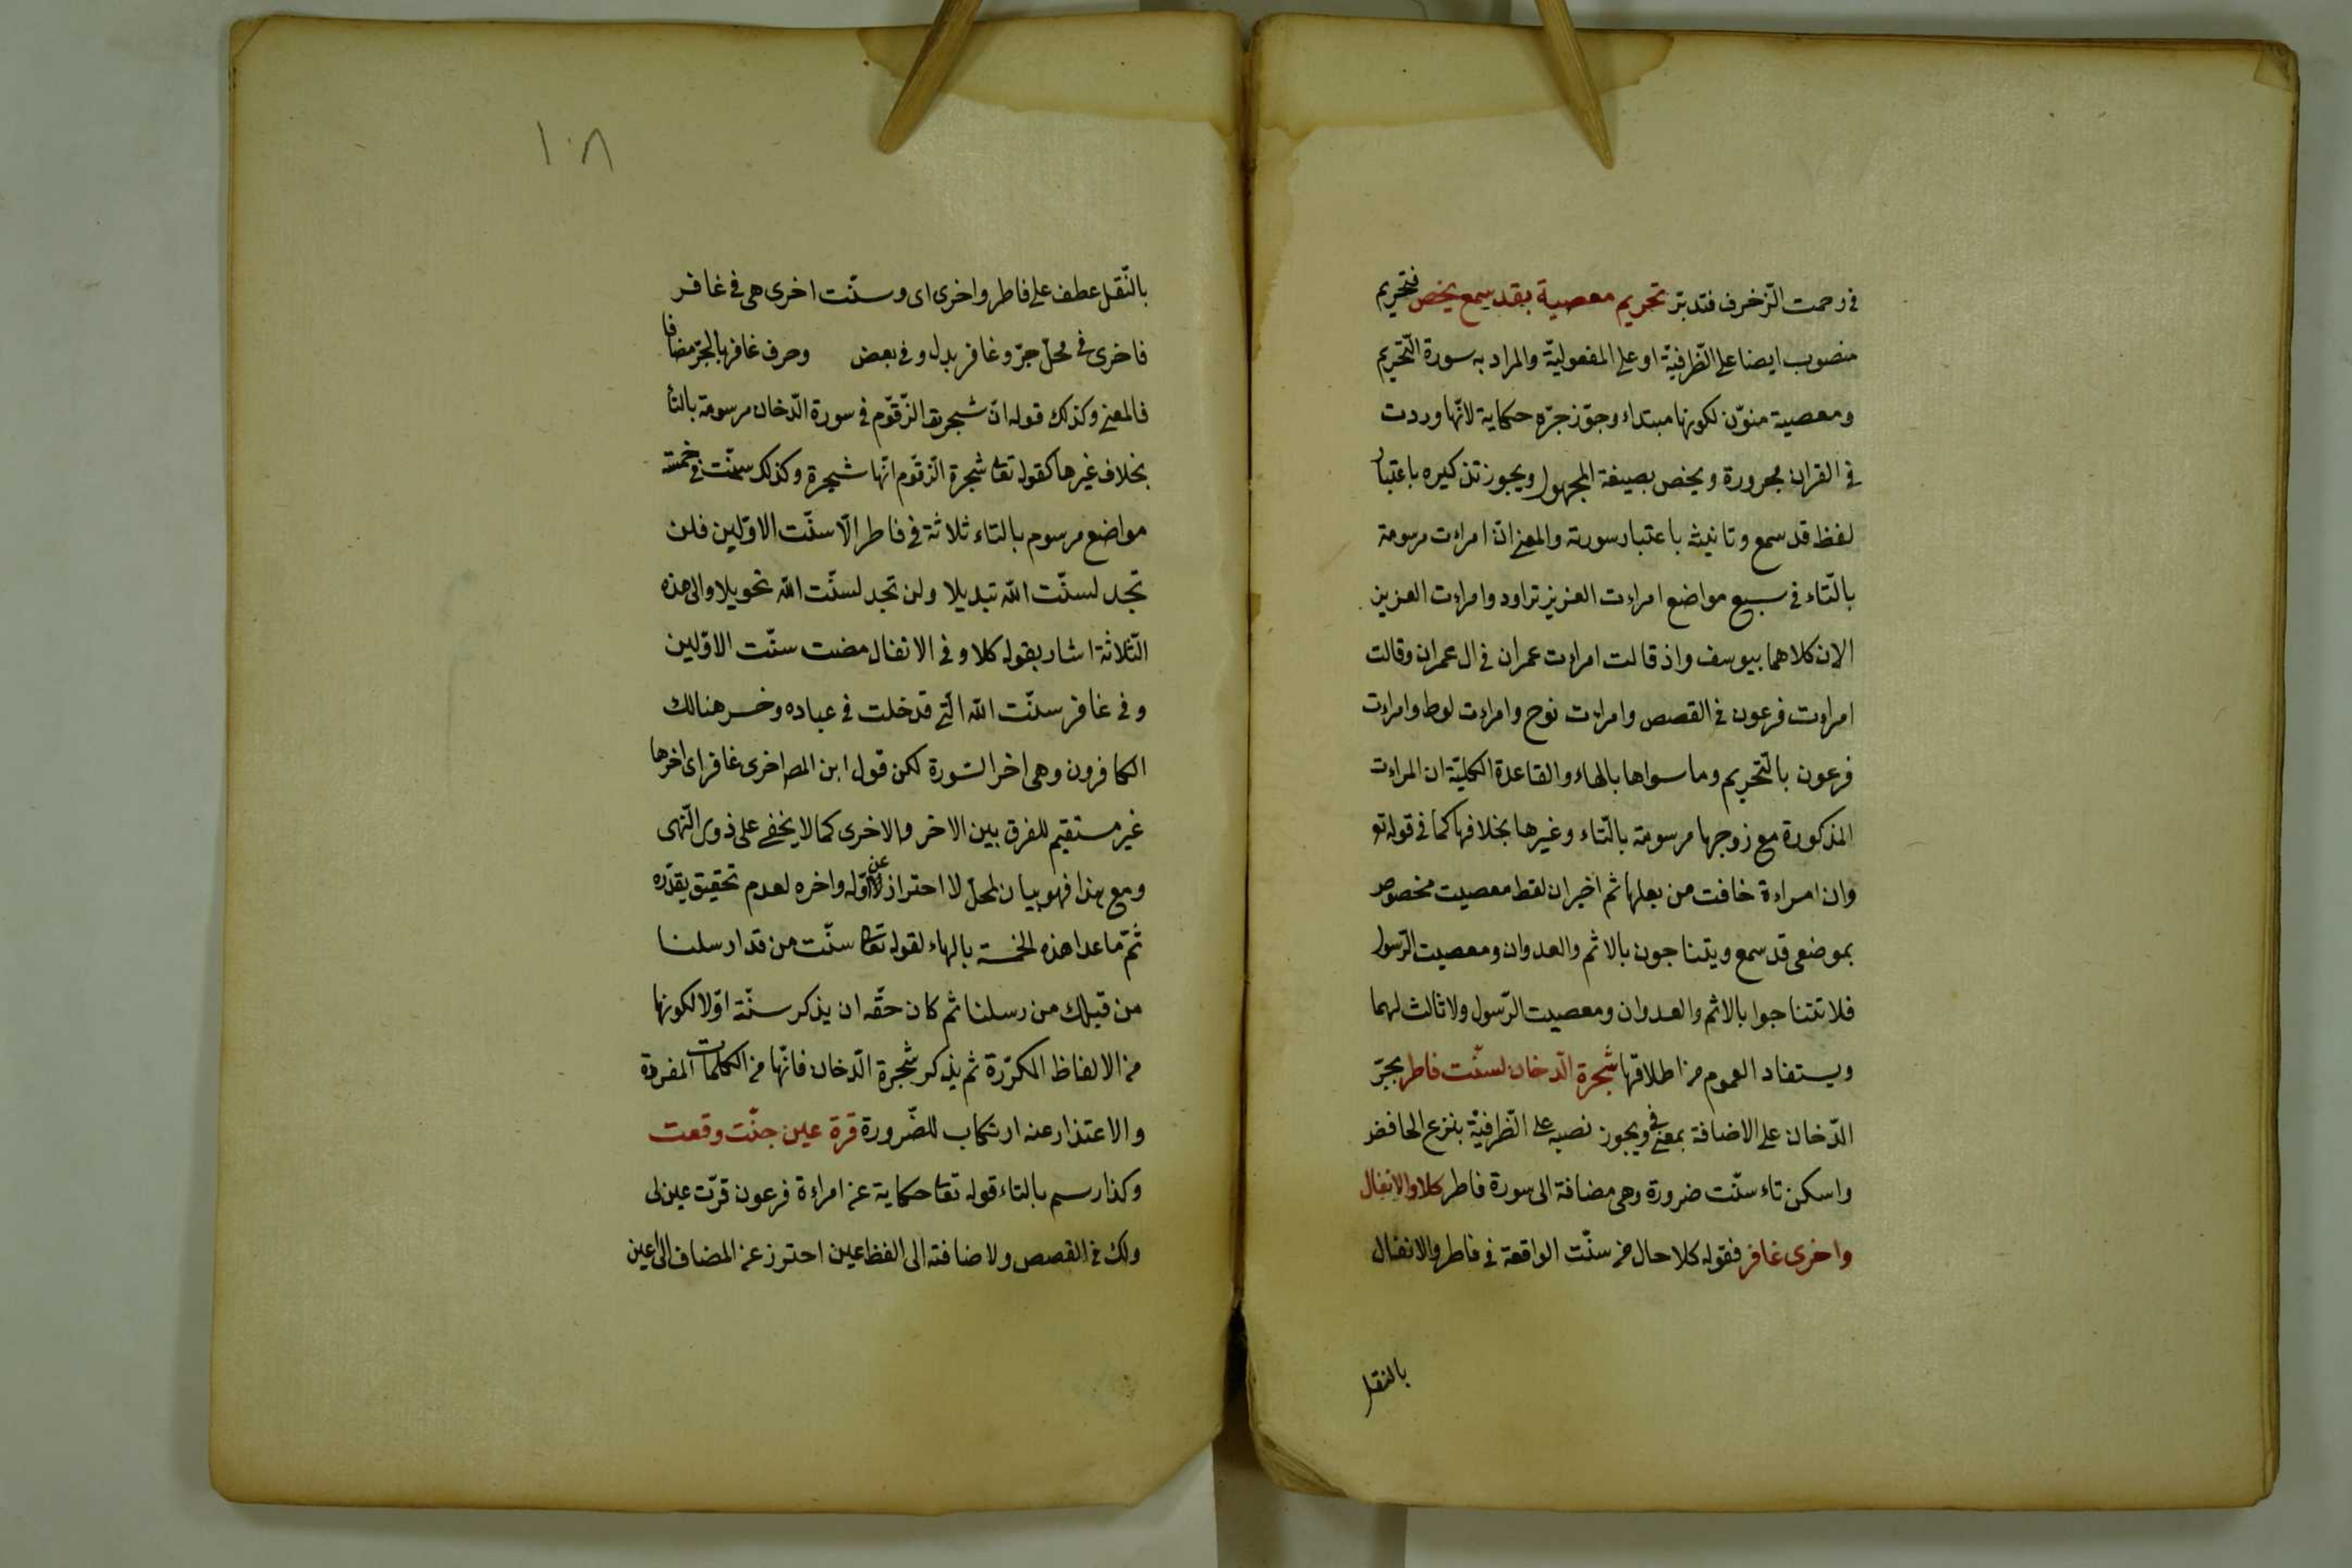 في رحمت الزخرف فتدبر تحريم معصية بقد سمع يخص فتحريم
منصوب ايضا على الظرفية او على المفعولية والمراد به سورة التحريم
ومعصية منوّن لكونها مبتداء وجوّز جرّه حكاية لانّها وردت
في القران مجرورة ويخص بصيغة المجهول ويجوز تذكيره باعتبار
لفظ قد سمع وتانيثه باعتبار سورته والمعنى انّ امراءت مرسومة
بالتّاء في سبع مواضع امراءت العزيز تراود وامراءت العزيز
الان كلاهما بيوسف واذ قالت امراءت عمران في ال عمران وقالت
امراءت فرعون في القصص وامراءت نوح وامراءت لوط وامراءت
فرعون بالتّحريم وما سواها بالهاء والقاعدة الكليّة ان المراءت
المذكورة مع زوجها مرسومة بالتّاء وغيرها بخلافها كما في قوله تع
وان امراءة خافت من بعلها ثم اخبر ان لفظ معصيت مخصوص
بموضعى قد سمع ويتناجون بالاثم والعدوان ومعصيت الرّسول
فلا تتناجوا بالاثم والعدوان ومعصيت الرّسول ولا ثالث لهما
ويستفاد العموم من اطلاقها شجرة الدّخان لسنّت فاطر بجرّ
الدّخان على الاضافة بمعنى في ويجوز نصبه على الظّرفيّة بنزع الخافض
واسكن تاء سنّت ضرورة وهى مضافة الى سورة فاطر كلا والانفال
واخرى غافر فقوله كلا حال من سنّت الواقعة في فاطر والانفال
بالنقل
١٠٨
بالنّقل عطف على فاطر واخرى اى وسنّت اخرى هى في غافر
فاخرى في محلّ جرّ وغافر بدل وفي بعض وحرف غافر بالجرّ مضافا
فالمعنى وكذلك قوله انّ شجرت الزّقّوم في سورة الدّخان مرسومة بالتّا
بخلاف غيرها كقوله تعا شجرة الزّقّوم انّها شجرة وكذلك سنّت في خمسة
مواضع مرسوم بالتاء ثلاثة في فاطر الّا سنّت الاوّلين فلن
تجد لسنّت الله تبديلا ولن تجد لسنّت الله تحويلا والى هذه
الثّلاثة اشار بقوله كلا وفي الانفال مضت سنّت الاوّلين
وفي غافر سنّت الله الّتى قد خلت في عباده وخسر هنالك
الكافرون وهى اخر السّورة لكن قول ابن المص اخرى غافر اى اخرها
غير مستقيم للفرق بين الاخر والاخرى كما لا يخفى على ذوى النّهى
ومع هذا فهو بيان لمحلّ لا احتراز عن اوّله واخره لعدم تحقيق يقدّره
ثمّ ما عدا هذه الخمسة بالهاء لقوله تعا سنّت من قد ارسلنا
من قبلك من رسلنا ثم كان حقّه ان يذكر سنّة اوّلا لكونها
من الالفاظ المكرّرة ثم يذكر شجرة الدّخان فانّها من الكلمات المفردة
والاعتذار عنه ارتكاب للضّرورة قرة عين جنّت وقعت
وكذا رسم بالتاء قوله تعا حكاية عن امراءة فرعون قرّت عين لى
ولك في القصص ولاضافته الى الفظ عين احترز عن المضاف الى اعين